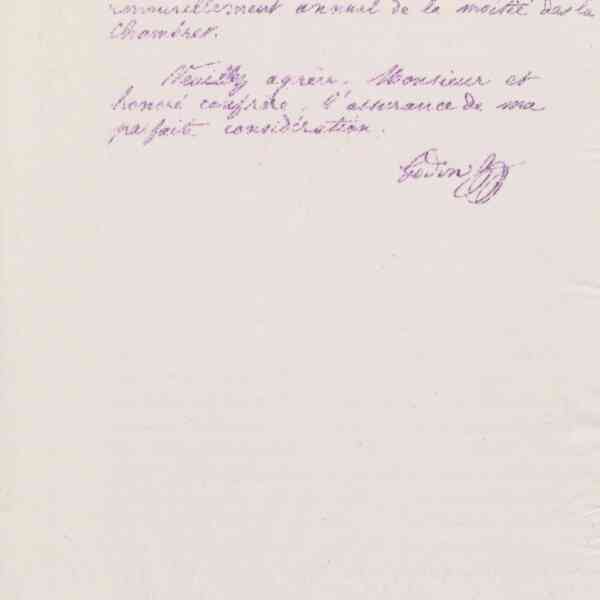 renouvellement annuel de la moitié des
Chambres.
Veuillez agréer, Monsieur et
honoré confrère, l'assurance de ma
parfaite considération.
Godin